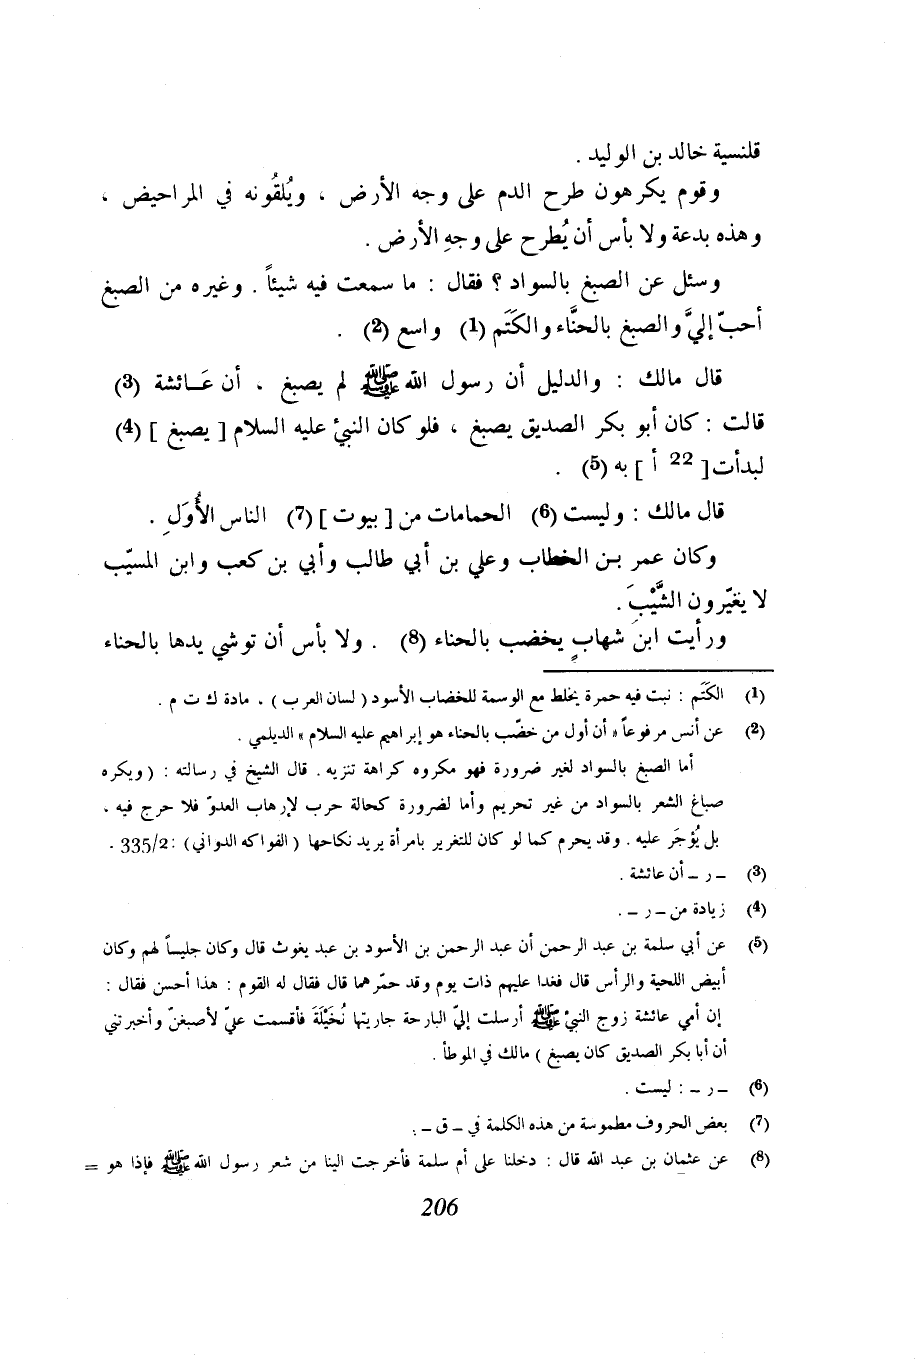 قلنسية خالد بن الوليد .
وقوم يكرهون طرح الدم على وجه الأرض ، ويُلقُونه في المراحيض ،
وهذه بدعة ولا بأس أن يُطرح على وجهِ الأرض .
وسئل عن الصبغ بالسواد ؟ فقال : ما سمعت فيه شيئاً . وغيره من الصبغ
أحبّ إليَّ والصبغ بالحنَّاء والكَتَم (1) واسع (2) .
قال مالك : والدليل أن رسول الله ﷺ لم يصبغ ، أن عَـائشة (3)
قالت : كان أبو بكر الصديق يصبغ ، فلو كان النبيُّ عليه السلام [ يصبغ ] (4)
لبدأت [ 22 أ ] به (5) .
قال مالك : وليست (6) الحمامات من [ بيوت ] (7) الناس الأُوَلِ .
وكان عمر بـن الخطاب وعلي بن أبي طالب وأبي بن كعب وابن المسيّب
لا يغيّرون الشَّيْبَ .
ورأيت ابنَ شهابٍ يخضب بالحناء (8) . ولا بأس أن توشي يدها بالحناء
(1) الكَتَم : نبت فيه حمرة يخلط مع الوسمة للخضاب الأسود ( لسان العرب ) . مادة ك ت م .
(2) عن أنس مرفوعاً « أن أول من خضّب بالحناء هو إبراهيم عليه السلام » الديلمي .
أما الصبغ بالسواد لغير ضرورة فهو مكروه كراهة تنزيه . قال الشيخ في رسالته : ( ويكره
صباغ الشعر بالسواد من غير تحريم وأما لضرورة كحالة حرب لإرهاب العدوّ فلا حرج فيه ،
بل يُؤجَر عليه . وقد يحرم كما لو كان للتغرير بامرأة يريد نكاحها ( الفواكه الدواني ) : 335/2 .
(3) – ر – أن عائشة .
(4) زيادة من – ر – .
(5) عن أبي سلمة بن عبد الرحمن أن عبد الرحمن بن الأسود بن عبد يغوث قال وكان جليساً لهم وكان
أبيض اللحية والرأس قال فغدا عليهم ذات يوم وقد حمّرهما قال فقال له القوم : هذا أحسن فقال :
إن أمي عائشة زوج النبيّ ﷺ أرسلت إليّ البارحة جاريتها نُخَيْلَةَ فأقسمت عليّ لأصبغنّ وأخبرتني
أن أبا بكر الصديق كان يصبغ ) مالك في الموطأ .
(6) – ر – : ليست .
(7) بعض الحروف مطموسة من هذه الكلمة في – ق – .
(8) عن عثمان بن عبد الله قال : دخلنا على أم سلمة فأخرجت الينا من شعر رسول الله ﷺ فإذا هو =
206